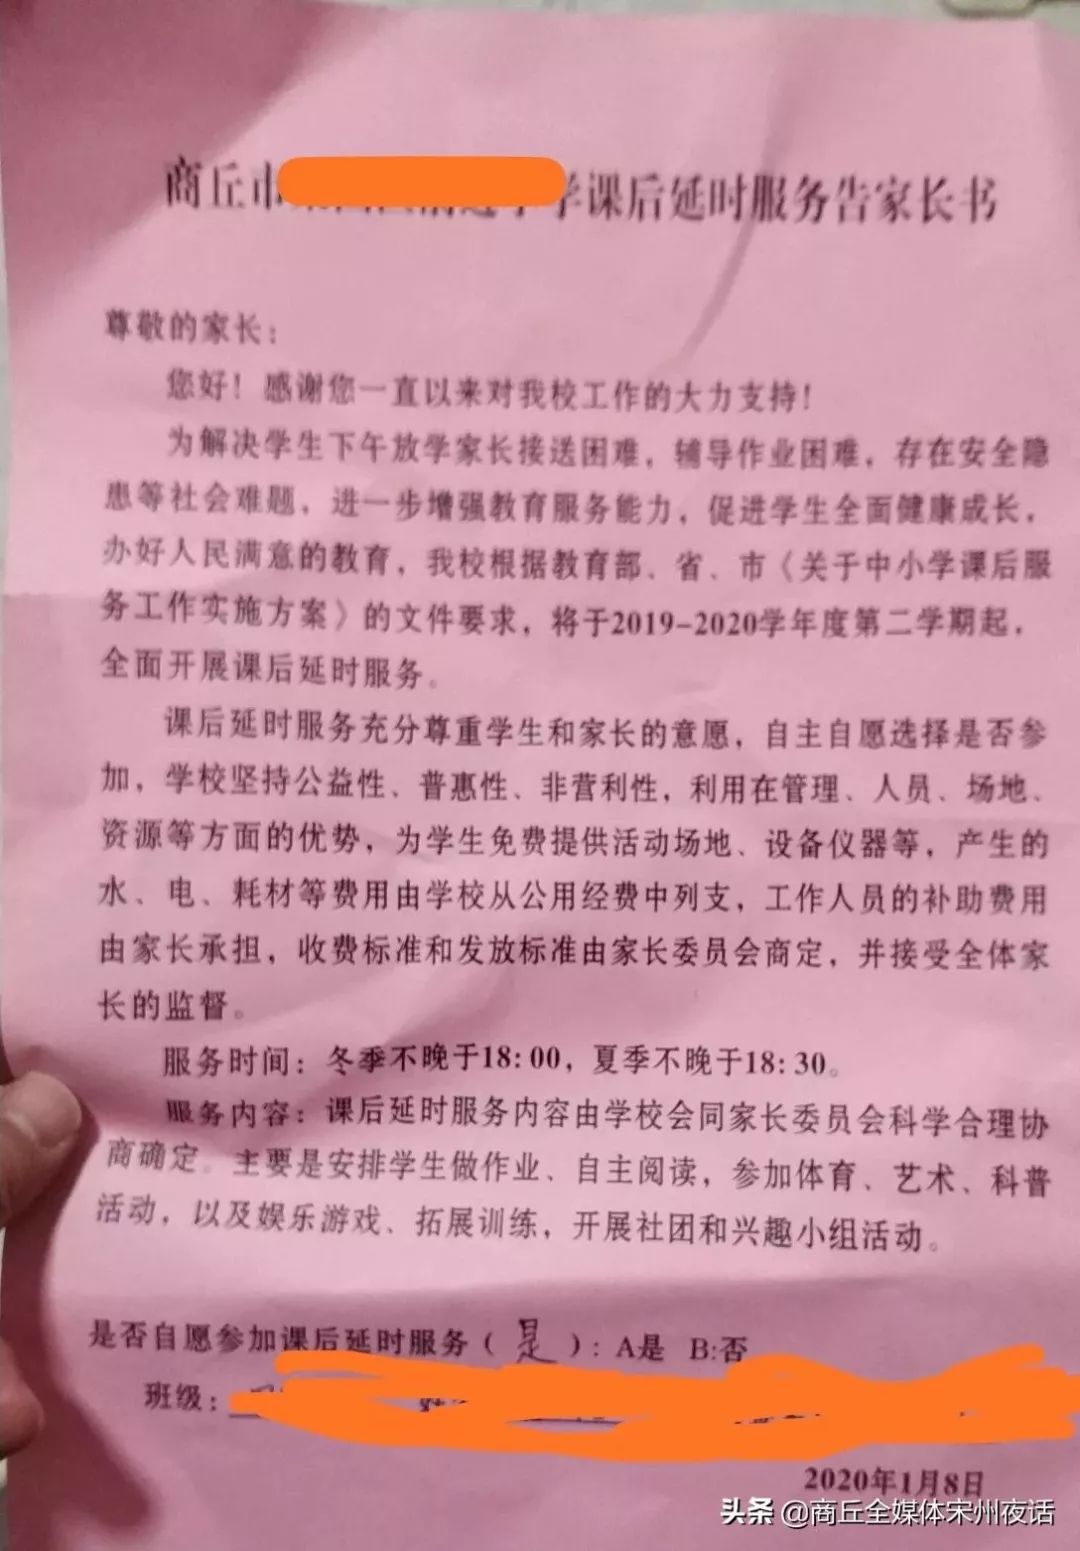 商丘市 学课后延时服务告家长书
尊敬的家长：
您好！感谢您一直以来对我校工作的大力支持！
为解决学生下午放学家长接送困难，辅导作业困难，存在安全隐
患等社会难题，进一步增强教育服务能力，促进学生全面健康成长，
办好人民满意的教育，我校根据教育部、省、市《关于中小学课后服
务工作实施方案》的文件要求，将于2019-2020学年度第二学期起，
全面开展课后延时服务。
课后延时服务充分尊重学生和家长的意愿，自主自愿选择是否参
加，学校坚持公益性、普惠性、非营利性，利用在管理、人员、场地、
资源等方面的优势，为学生免费提供活动场地、设备仪器等，产生的
水、电、耗材等费用由学校从公用经费中列支，工作人员的补助费用
由家长承担，收费标准和发放标准由家长委员会商定，并接受全体家
长的监督。
服务时间：冬季不晚于18:00，夏季不晚于18:30。
服务内容：课后延时服务内容由学校会同家长委员会科学合理协
商确定。主要是安排学生做作业、自主阅读，参加体育、艺术、科普
活动，以及娱乐游戏、拓展训练，开展社团和兴趣小组活动。
是否自愿参加课后延时服务（是）：A是 B:否
班级：
2020年1月8日
头条 @商丘全媒体宋州夜话